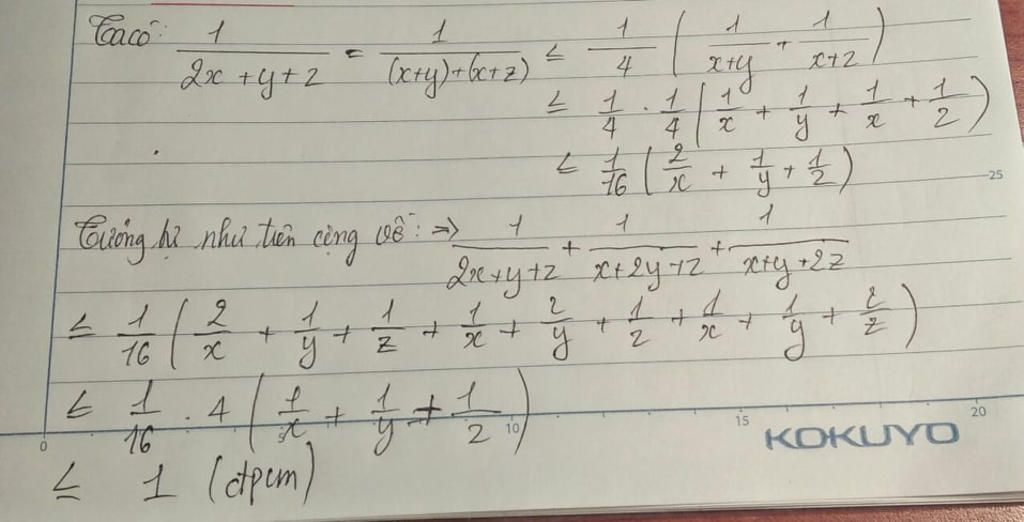 Ta có: 1/(2x+y+z) = 1/((x+y)+(x+z)) ≤ 1/4 (1/(x+y) + 1/(x+z))
≤ 1/4 . 1/4 (1/x + 1/y + 1/x + 1/z)
≤ 1/16 (2/x + 1/y + 1/z)
25
Tương tự như trên cộng vế: => 1/(2x+y+z) + 1/(x+2y+z) + 1/(x+y+2z)
≤ 1/16 (2/x + 1/y + 1/z + 1/x + 2/y + 1/z + 1/x + 1/y + 2/z)
≤ 1/16 . 4 (1/x + 1/y + 1/z)
0 10 15 20
KOKUYO
≤ 1 (đpcm)